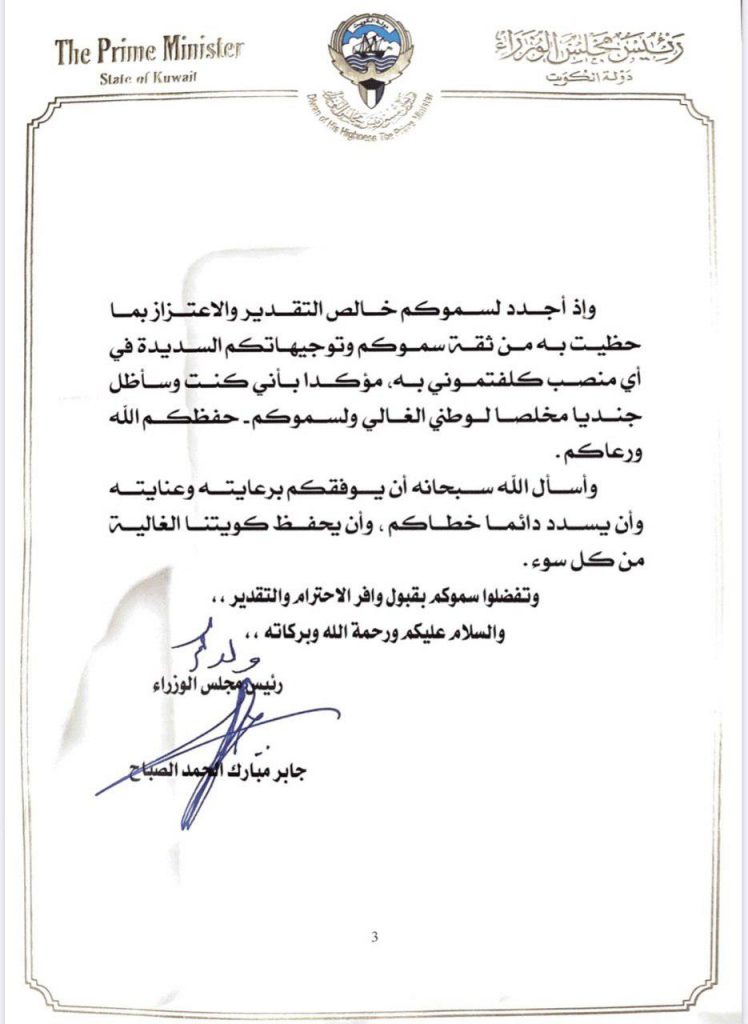 The Prime Minister
State of Kuwait
دولة الكويت
Diwan of His Highness The Prime Minister
رئيس مجلس الوزراء
دولة الكويت
وإذ أجدد لسموكم خالص التقدير والاعتزاز بما
حظيت به من ثقة سموكم وتوجيهاتكم السديدة في
أي منصب كلفتموني به، مؤكدا بأني كنت وسأظل
جنديا مخلصا لوطني الغالي ولسموكم - حفظكم الله
ورعاكم .
وأسأل الله سبحانه أن يوفقكم برعايته وعنايته
وأن يسدد دائما خطاكم ، وأن يحفظ كويتنا الغالية
من كل سوء .
وتفضلوا سموكم بقبول وافر الاحترام والتقدير ،،
والسلام عليكم ورحمة الله وبركاته ،،
ولدكم
رئيس مجلس الوزراء
جابر مبارك الحمد الصباح
3